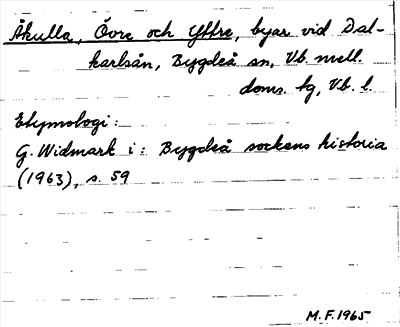 Åkulla, Övre och Yttre, byar vid Dal-
karlsån, Bygdeå sn, Vb. mell.
doms. tg, Vb. l.
Etymologi:
G. Widmark i: Bygdeå sockens historia
(1963), s. 59
M.F. 1965